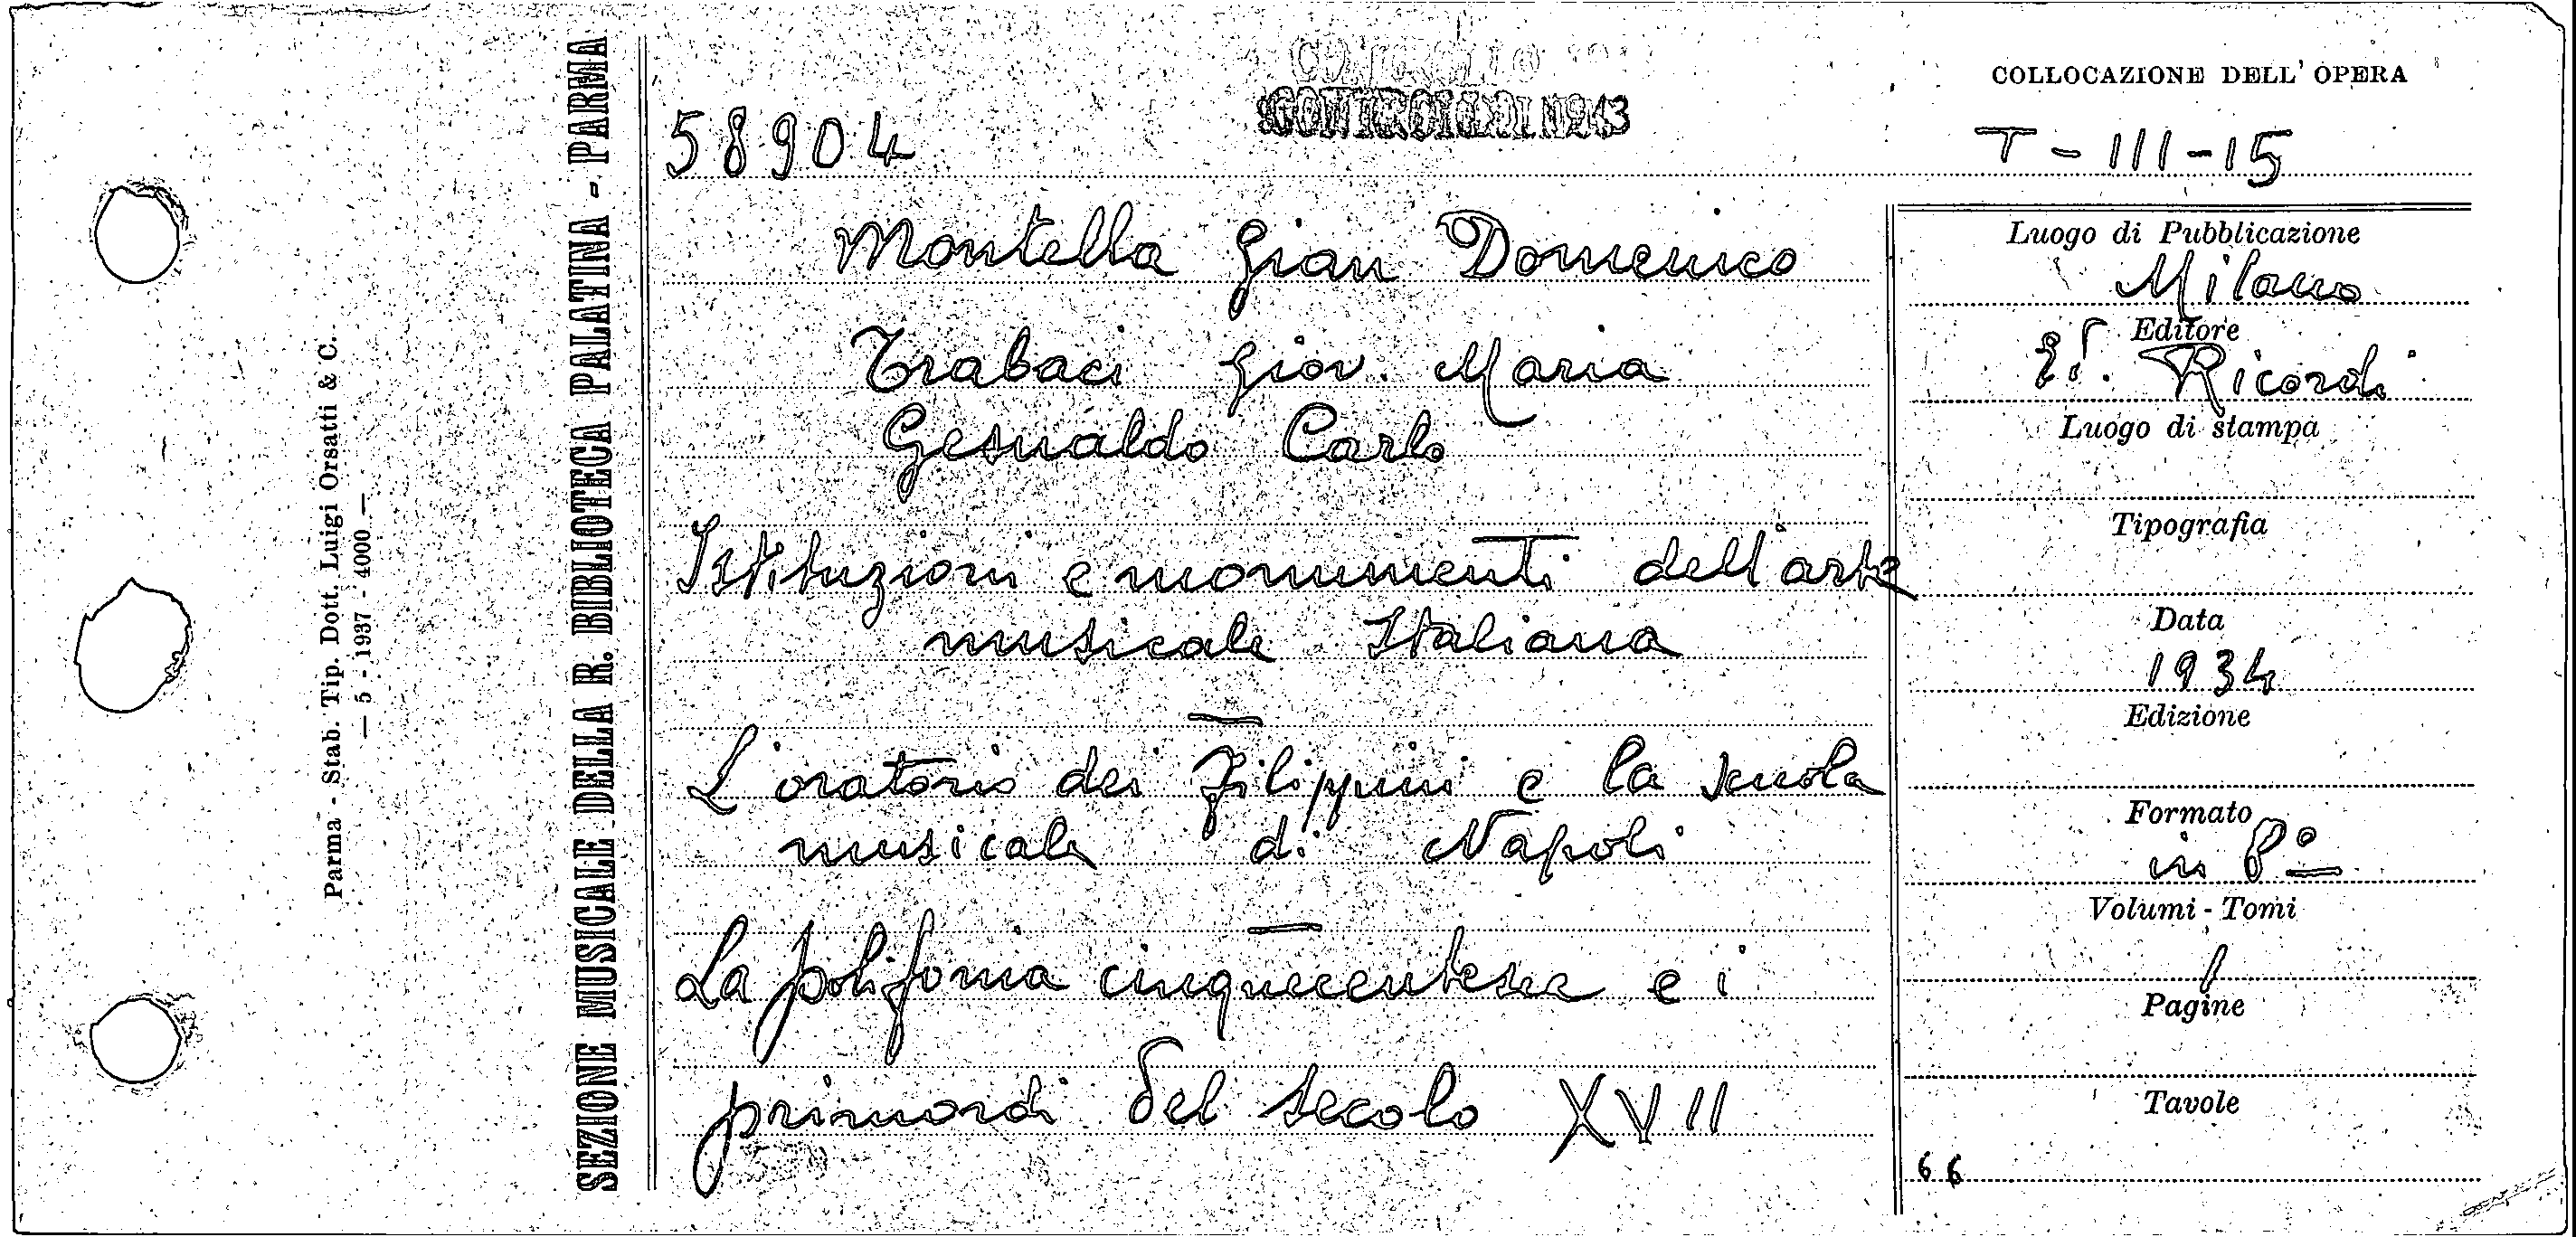 SEZIONE MUSICALE DELLA R. BIBLIOTECA PALATINA - PARMA
Parma - Stab. Tip. Dott. Luigi Orsatti & C.
— 5 - 1937 - 4000 —
58904
CONTROLLO
CONTROLLO 1943
COLLOCAZIONE DELL' OPERA
T - III - 15
Montella Gian Domenico
Trabaci Giov. Maria
Gesualdo Carlo
Istituzioni e monumenti dell'arte
musicale Italiana
—
L'oratorio dei Filippini e la scuola
musicale di Napoli
—
La polifonia cinquecentesca e i
primordi del secolo XVII
Luogo di Pubblicazione
Milano
Editore
Ricordi
Luogo di stampa
Tipografia
Data
1934
Edizione
Formato
in 8º
Volumi - Tomi
1
Pagine
Tavole
66